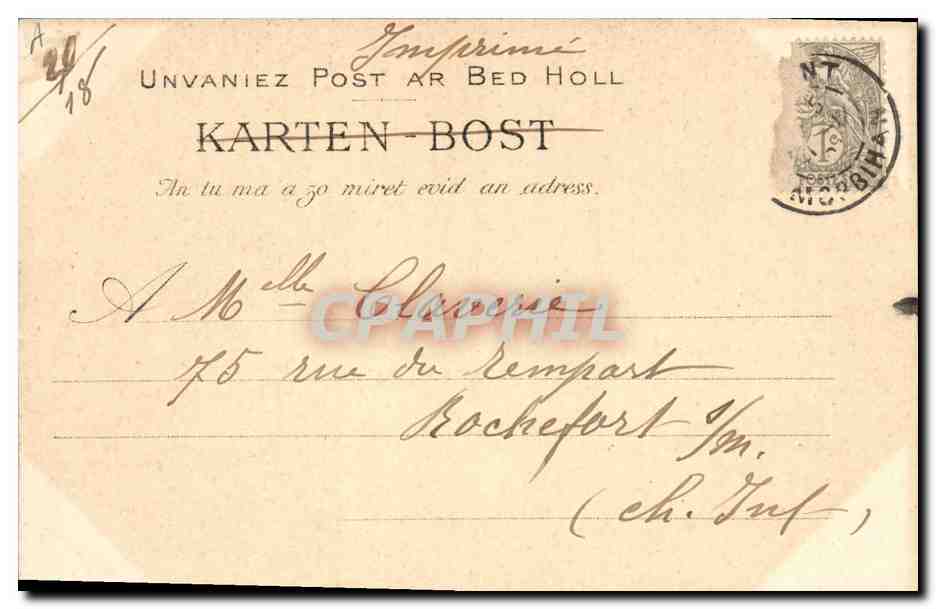 A
Imprimé
UNVANIEZ POST AR BED HOLL
KARTEN-BOST
An tu ma a zo miret evid an adress.
NT
MORBIHAN
A Melle Claverie
CPAPHIL
75 rue du rempart
Rochefort s/m.
(ch. Inf,